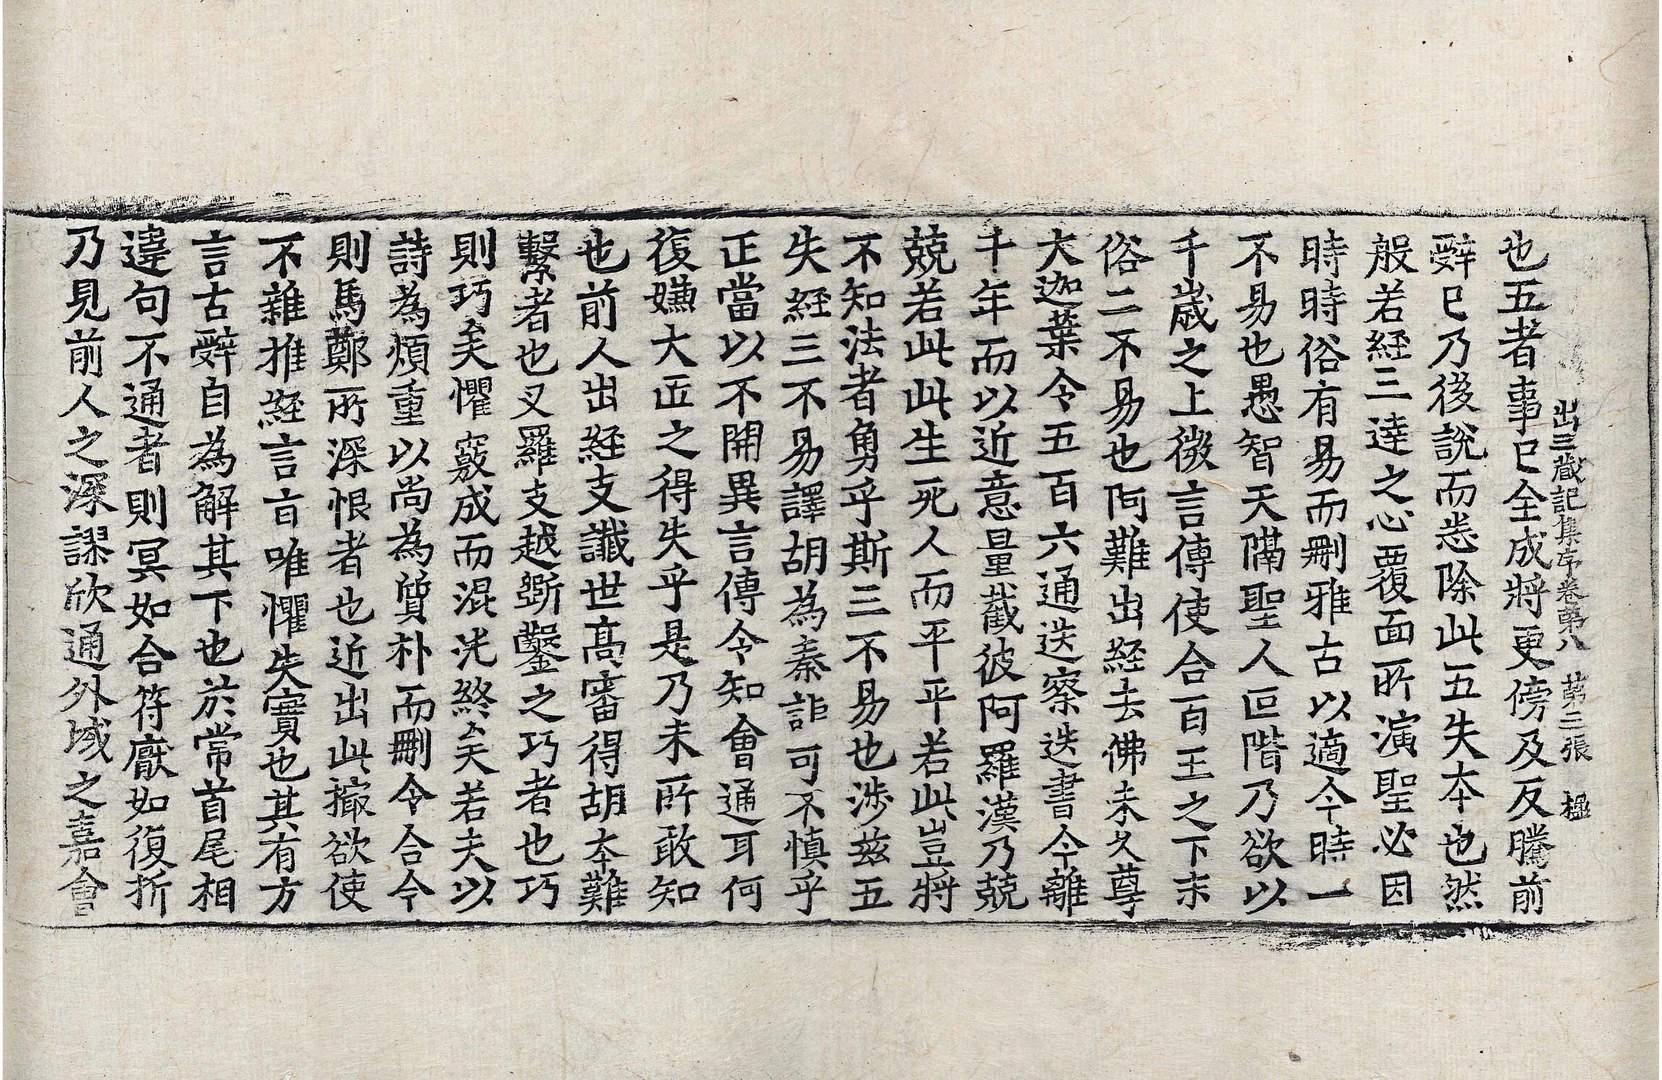 出三藏記集序卷第八　第三張　楹
也五者事已全成將更傍及反騰前
辭已乃後說而悉除此五失本也然
般若經三達之心覆面所演聖必因
時時俗有易而刪雅古以適今時一
不易也愚智天隔聖人叵階乃欲以
千歲之上微言傳使合百王之下末
俗二不易也阿難出經去佛未久尊
大迦葉令五百六通迭察迭書今離
千年而以近意量截彼阿羅漢乃兢
兢若此此生死人而平平若此豈將
不知法者勇乎斯三不易也涉茲五
失經三不易譯胡為秦詎可不慎乎
正當以不開異言傳令知會通耳何
復嫌大匠之得失乎是乃未所敢知
也前人出經支讖世高審得胡本難
繫者也叉羅支越斲鑿之巧者也巧
則巧矣懼竅成而混沌終矣若夫以
詩為煩重以尚為質朴而刪令合今
則馬鄭所深恨者也近出此撮欲使
不雜推經言旨唯懼失實也其有方
言古辭自為解其下也於常首尾相
違句不通者則冥如合符厭如復折
乃見前人之深謬欣通外域之嘉會